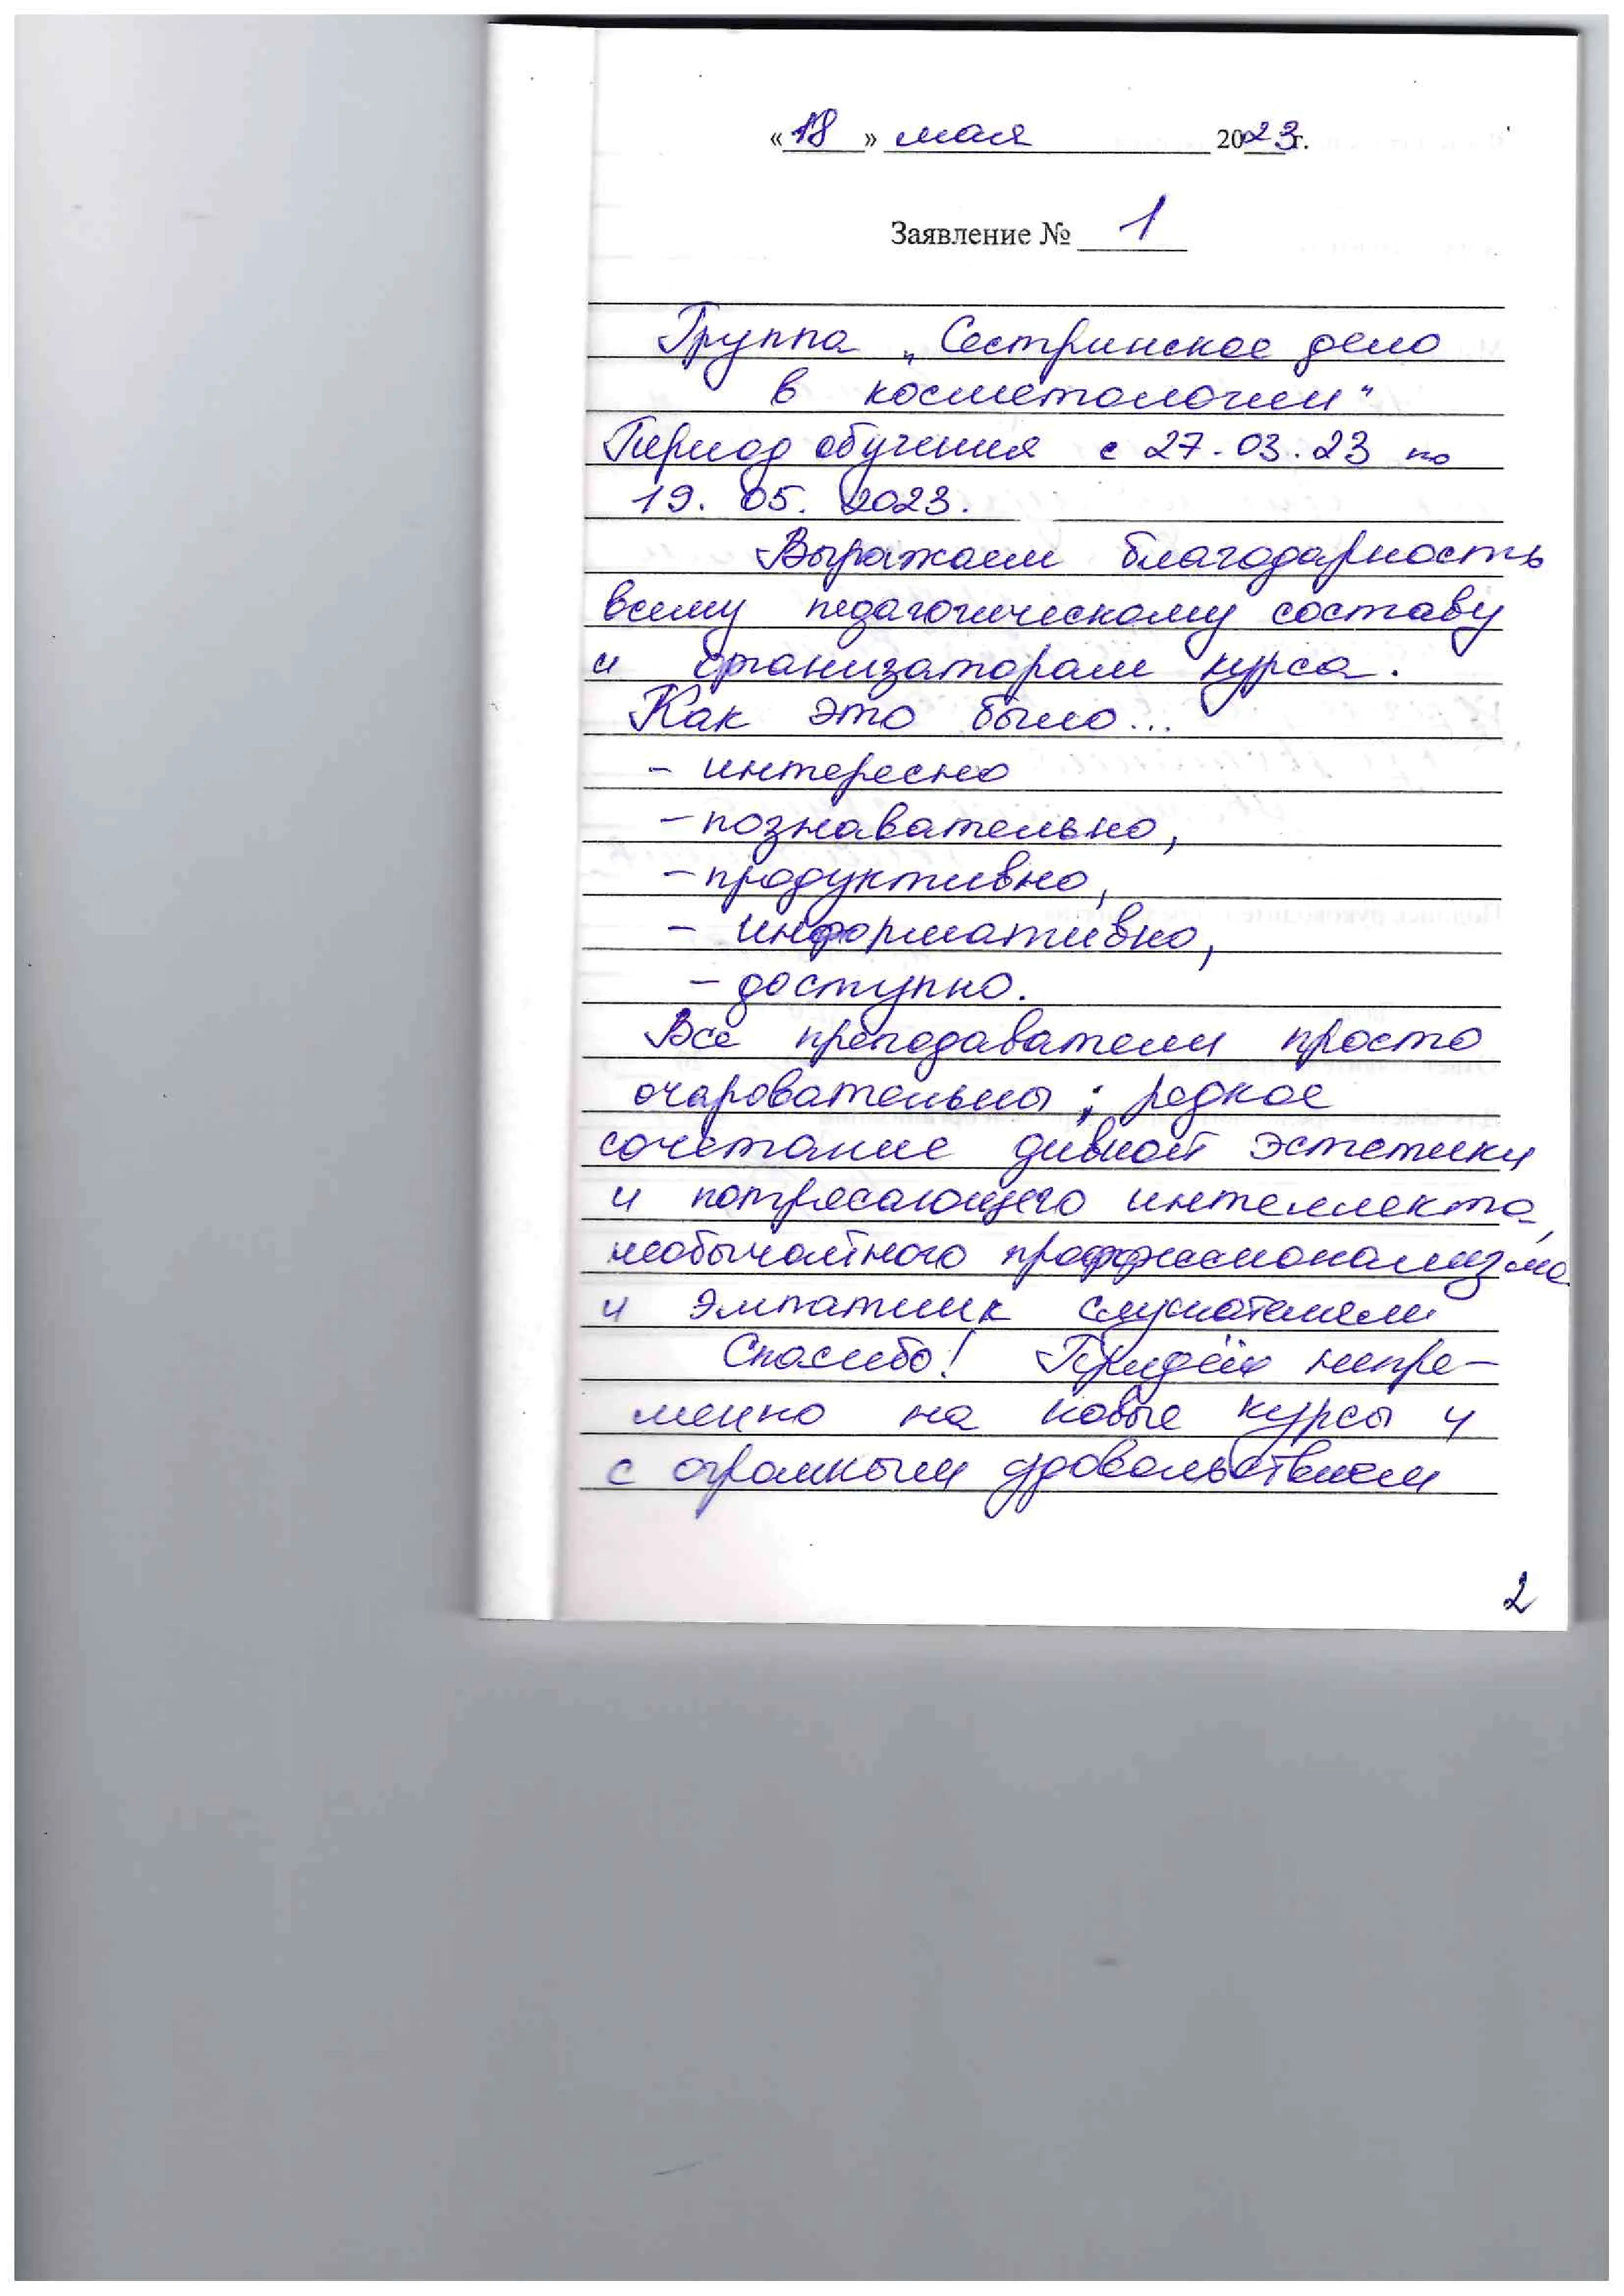 «18» мая 2023г.
Заявление № 1
Группа „Сестринское дело
в косметологии"
Период обучения с 27.03.23 по
19.05.2023.
Выражаем благодарность
всему педагогическому составу
и организаторам курса.
Как это было...
- интересно
- познавательно,
- продуктивно,
- информативно,
- доступно.
Все преподаватели просто
очаровательны; редкое
сочетание дивной эстетики
и потрясающего интеллекта,
необычайного профессионализма
и эмпатии к слушателям
Спасибо! Придём непре-
менно на новые курсы и
с огромным удовольствием
2